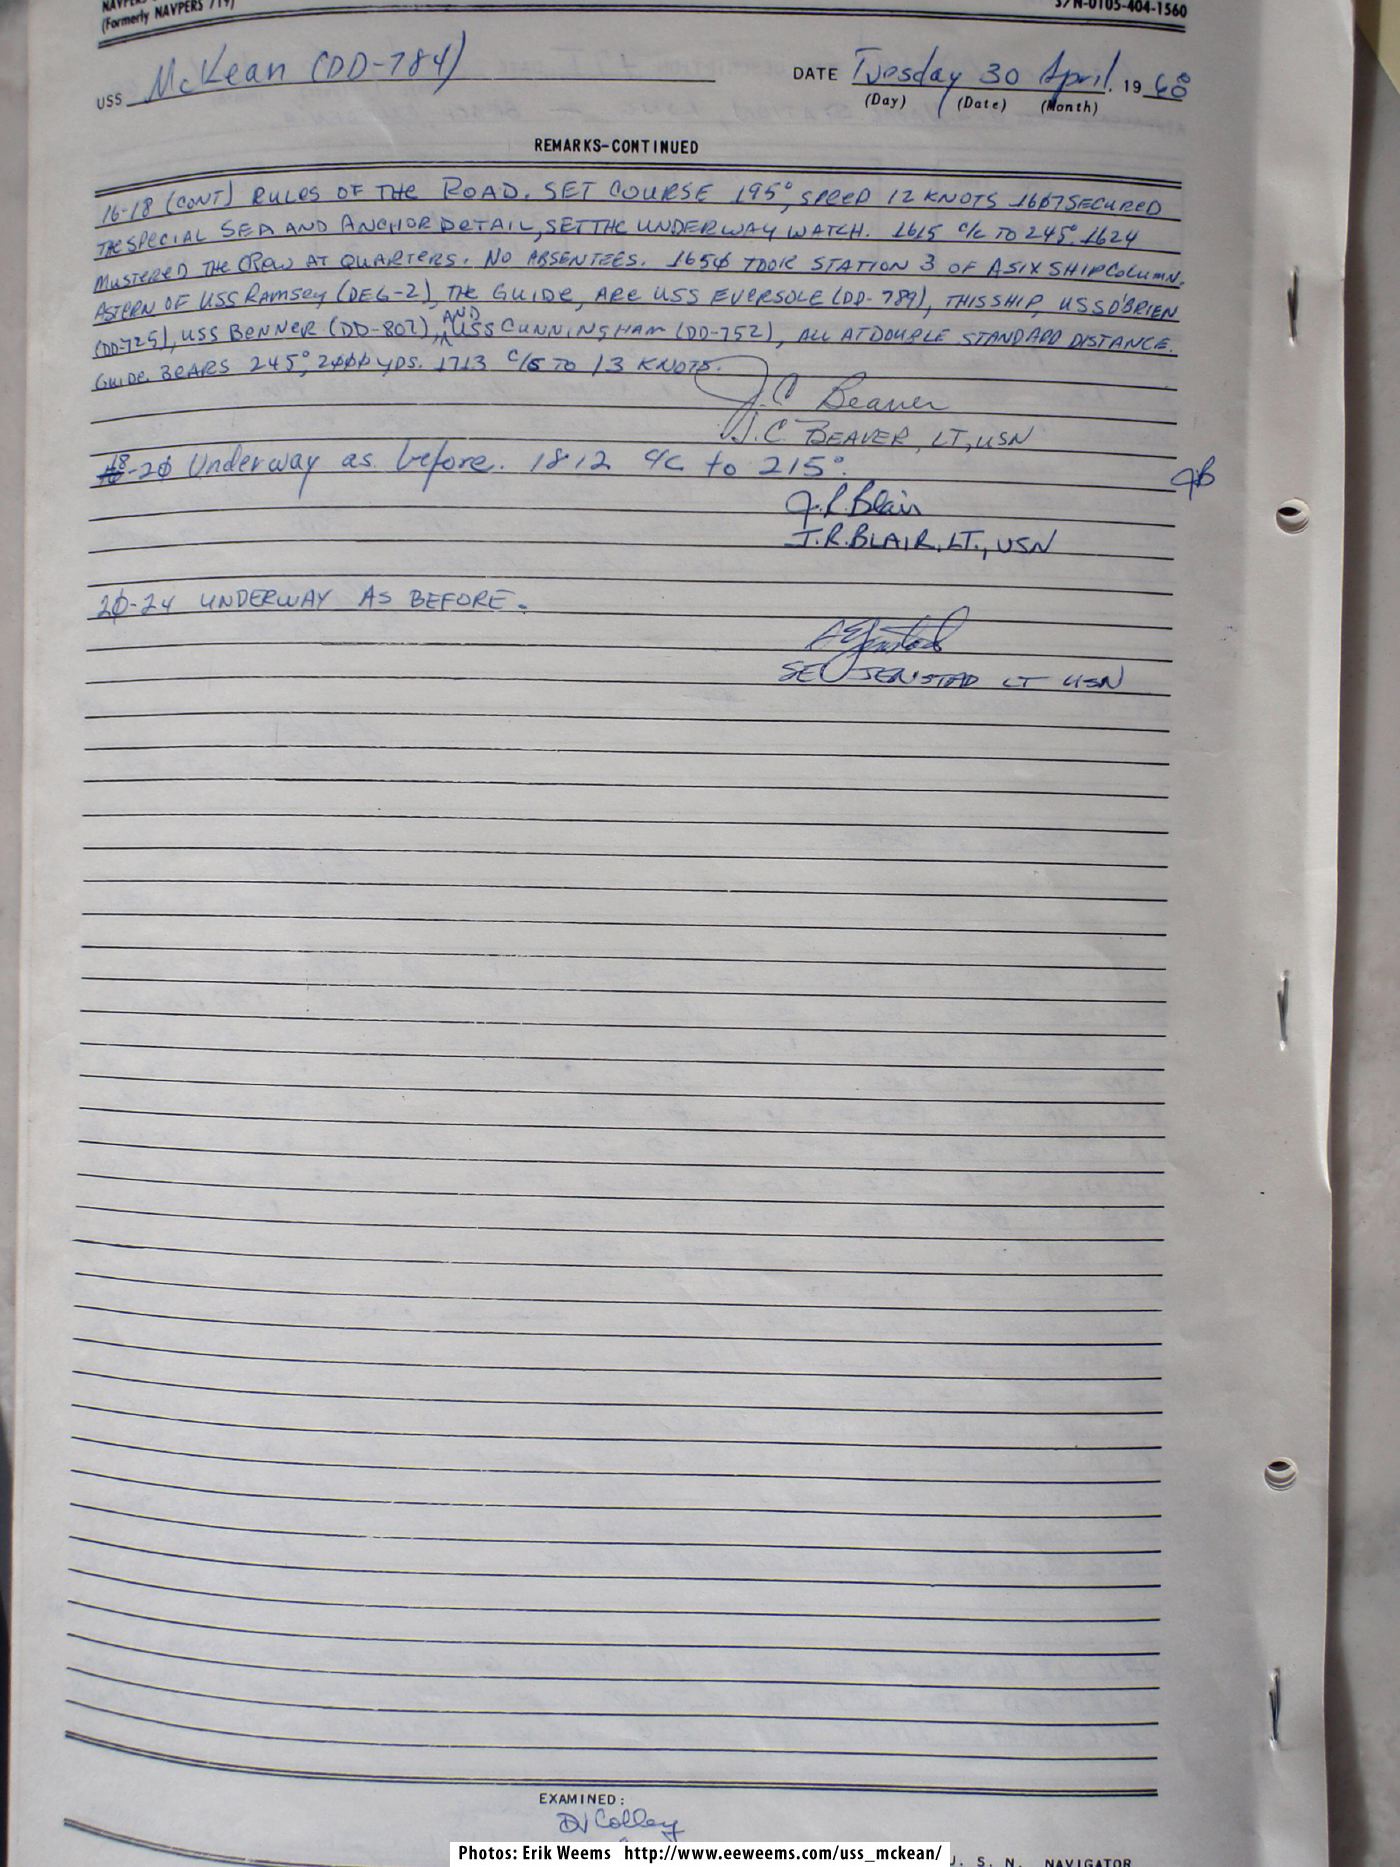 (Formerly NAVPERS 719)
S/N-0105-404-1560
USS McKean (DD-784) DATE Tuesday 30 April, 19 68
(Day) (Date) (Month)
REMARKS-CONTINUED
16-18 (CONT) RULES OF THE ROAD. SET COURSE 195°, SPEED 12 KNOTS 1607 SECURED
THE SPECIAL SEA AND ANCHOR DETAIL, SET THE UNDERWAY WATCH. 1615 C/C TO 245°. 1624
MUSTERED THE CREW AT QUARTERS. NO ABSENTEES. 1650 TOOK STATION 3 OF A SIX SHIP COLUMN.
ASTERN OF USS RAMSEY (DEG-2), THE GUIDE, ARE USS EVERSOLE (DD-789), THIS SHIP, USS O'BRIEN
(DD-725), USS BENNER (DD-807), AND USS CUNNINGHAM (DD-752), ALL AT DOUBLE STANDARD DISTANCE.
GUIDE BEARS 245°, 2000 YDS. 1713 C/S TO 13 KNOTS.
J.C Beaver
J.C. BEAVER, LT, USN
18-20 Underway as before. 1812 C/C to 215°. JB
J.R. Blair
J.R. BLAIR, LT., USN
20-24 UNDERWAY AS BEFORE.
SE JENSTAD LT USN
EXAMINED:
DJ Colley
U. S. N. NAVIGATOR
Photos: Erik Weems http://www.eeweems.com/uss_mckean/